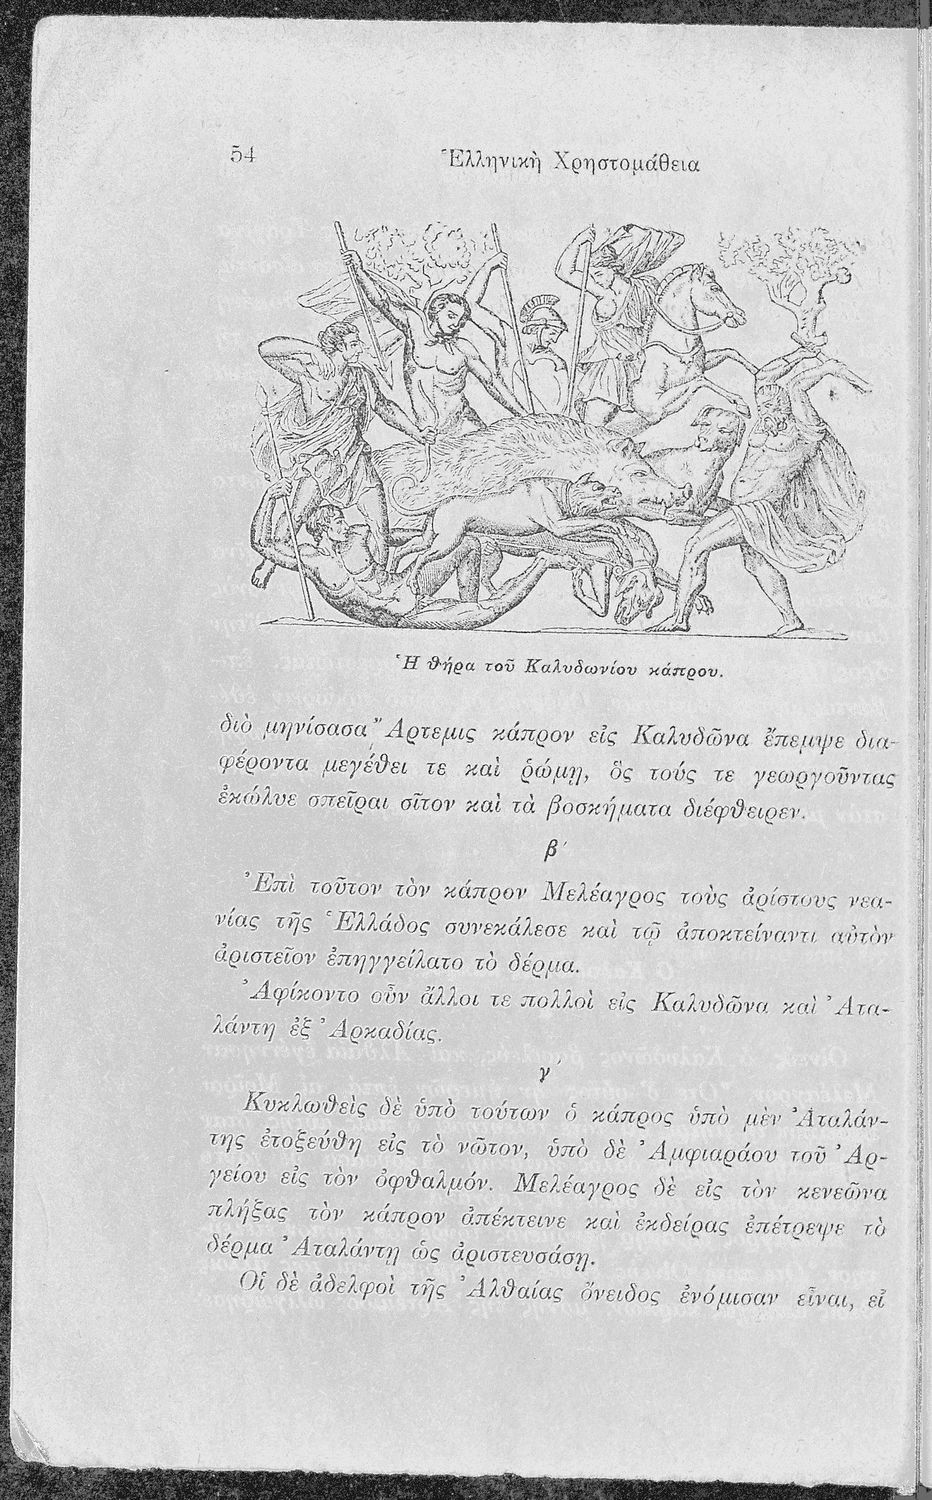 54
Ἑλληνικὴ Χρηστομάθεια
Ἡ θήρα τοῦ Καλυδωνίου κάπρου.
διὸ μηνίσασα Ἄρτεμις κάπρον εἰς Καλυδῶνα ἔπεμψε δια-
φέροντα μεγέθει τε καὶ ῥώμῃ, ὃς τούς τε γεωργοῦντας
ἐκώλυε σπεῖραι σῖτον καὶ τὰ βοσκήματα διέφθειρεν.
β´
Ἐπὶ τοῦτον τὸν κάπρον Μελέαγρος τοὺς ἀρίστους νεα-
νίας τῆς Ἑλλάδος συνεκάλεσε καὶ τῷ ἀποκτείναντι αὐτὸν
ἀριστεῖον ἐπηγγείλατο τὸ δέρμα.
Ἀφίκοντο οὖν ἄλλοι τε πολλοὶ εἰς Καλυδῶνα καὶ Ἀτα-
λάντη ἐξ Ἀρκαδίας.
γ´
Κυκλωθεὶς δὲ ὑπὸ τούτων ὁ κάπρος ὑπὸ μὲν Ἀταλάν-
της ἐτοξεύθη εἰς τὸ νῶτον, ὑπὸ δὲ Ἀμφιαράου τοῦ Ἀρ-
γείου εἰς τὸν ὀφθαλμόν. Μελέαγρος δὲ εἰς τὸν κενεῶνα
πλήξας τὸν κάπρον ἀπέκτεινε καὶ ἐκδείρας ἐπέτρεψε τὸ
δέρμα Ἀταλάντῃ ὡς ἀριστευσάσῃ.
Οἱ δὲ ἀδελφοὶ τῆς Ἀλθαίας ὄνειδος ἐνόμισαν εἶναι, εἰ